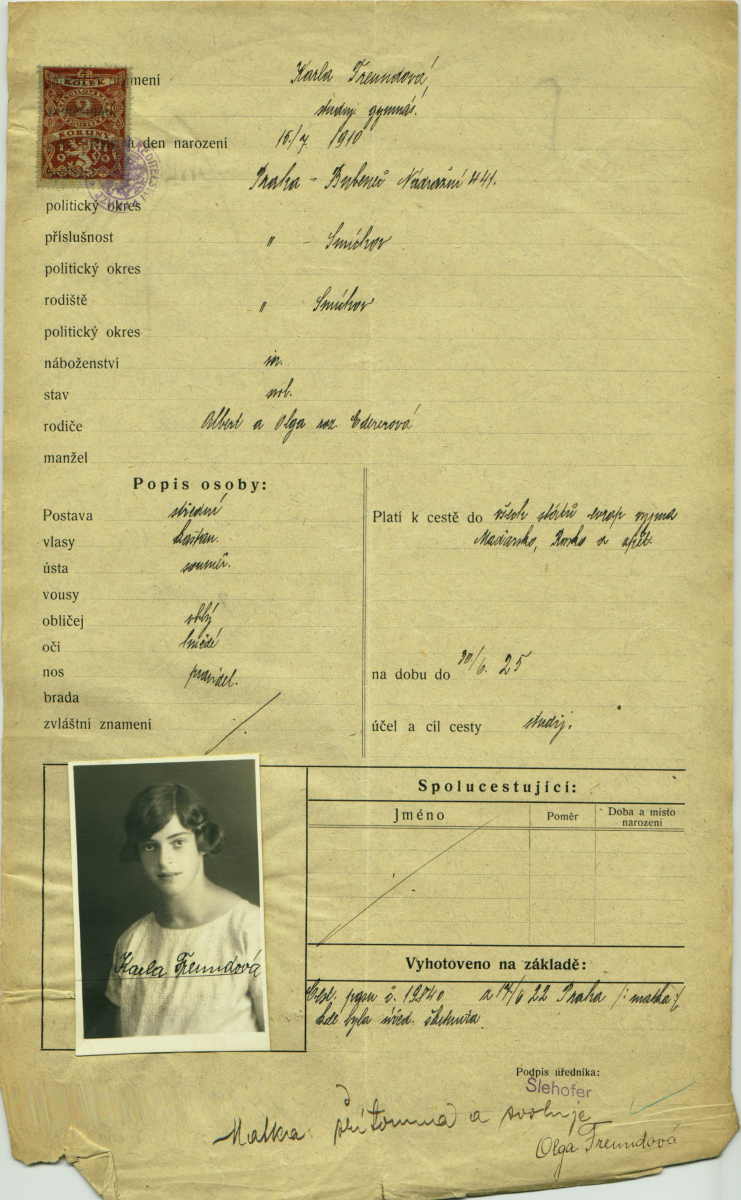 KOLEK
mení Karla Freundová
2
studuj. gymnas.
KORUNY
den narození 15/7 1910
Praha - Bubeneč Nádražní 441.
politický okres
příslušnost " - Smíchov
politický okres
rodiště " Smíchov
politický okres
náboženství
stav
rodiče Albert a Olga roz. Edererová
manžel
Popis osoby:
Postava střední
vlasy kaštan.
ústa souměr.
vousy
obličej oblý
oči hnědé
nos pravidel.
brada
zvláštní znamení
Platí k cestě do všech států evrop vyjma
Maďarsko, Rusko a zpět.
na dobu do 30/6. 25
účel a cíl cesty studij.
Spolucestující:
Jméno Poměr Doba a místo
narození
Karla Freundová
Vyhotoveno na základě:
Cest. pasu č. 12840 z 14/6 22 Praha /: matka :/
kde byla
Podpis úředníka:
Slehofer
Matka přítomna a svoluje
Olga Freundová